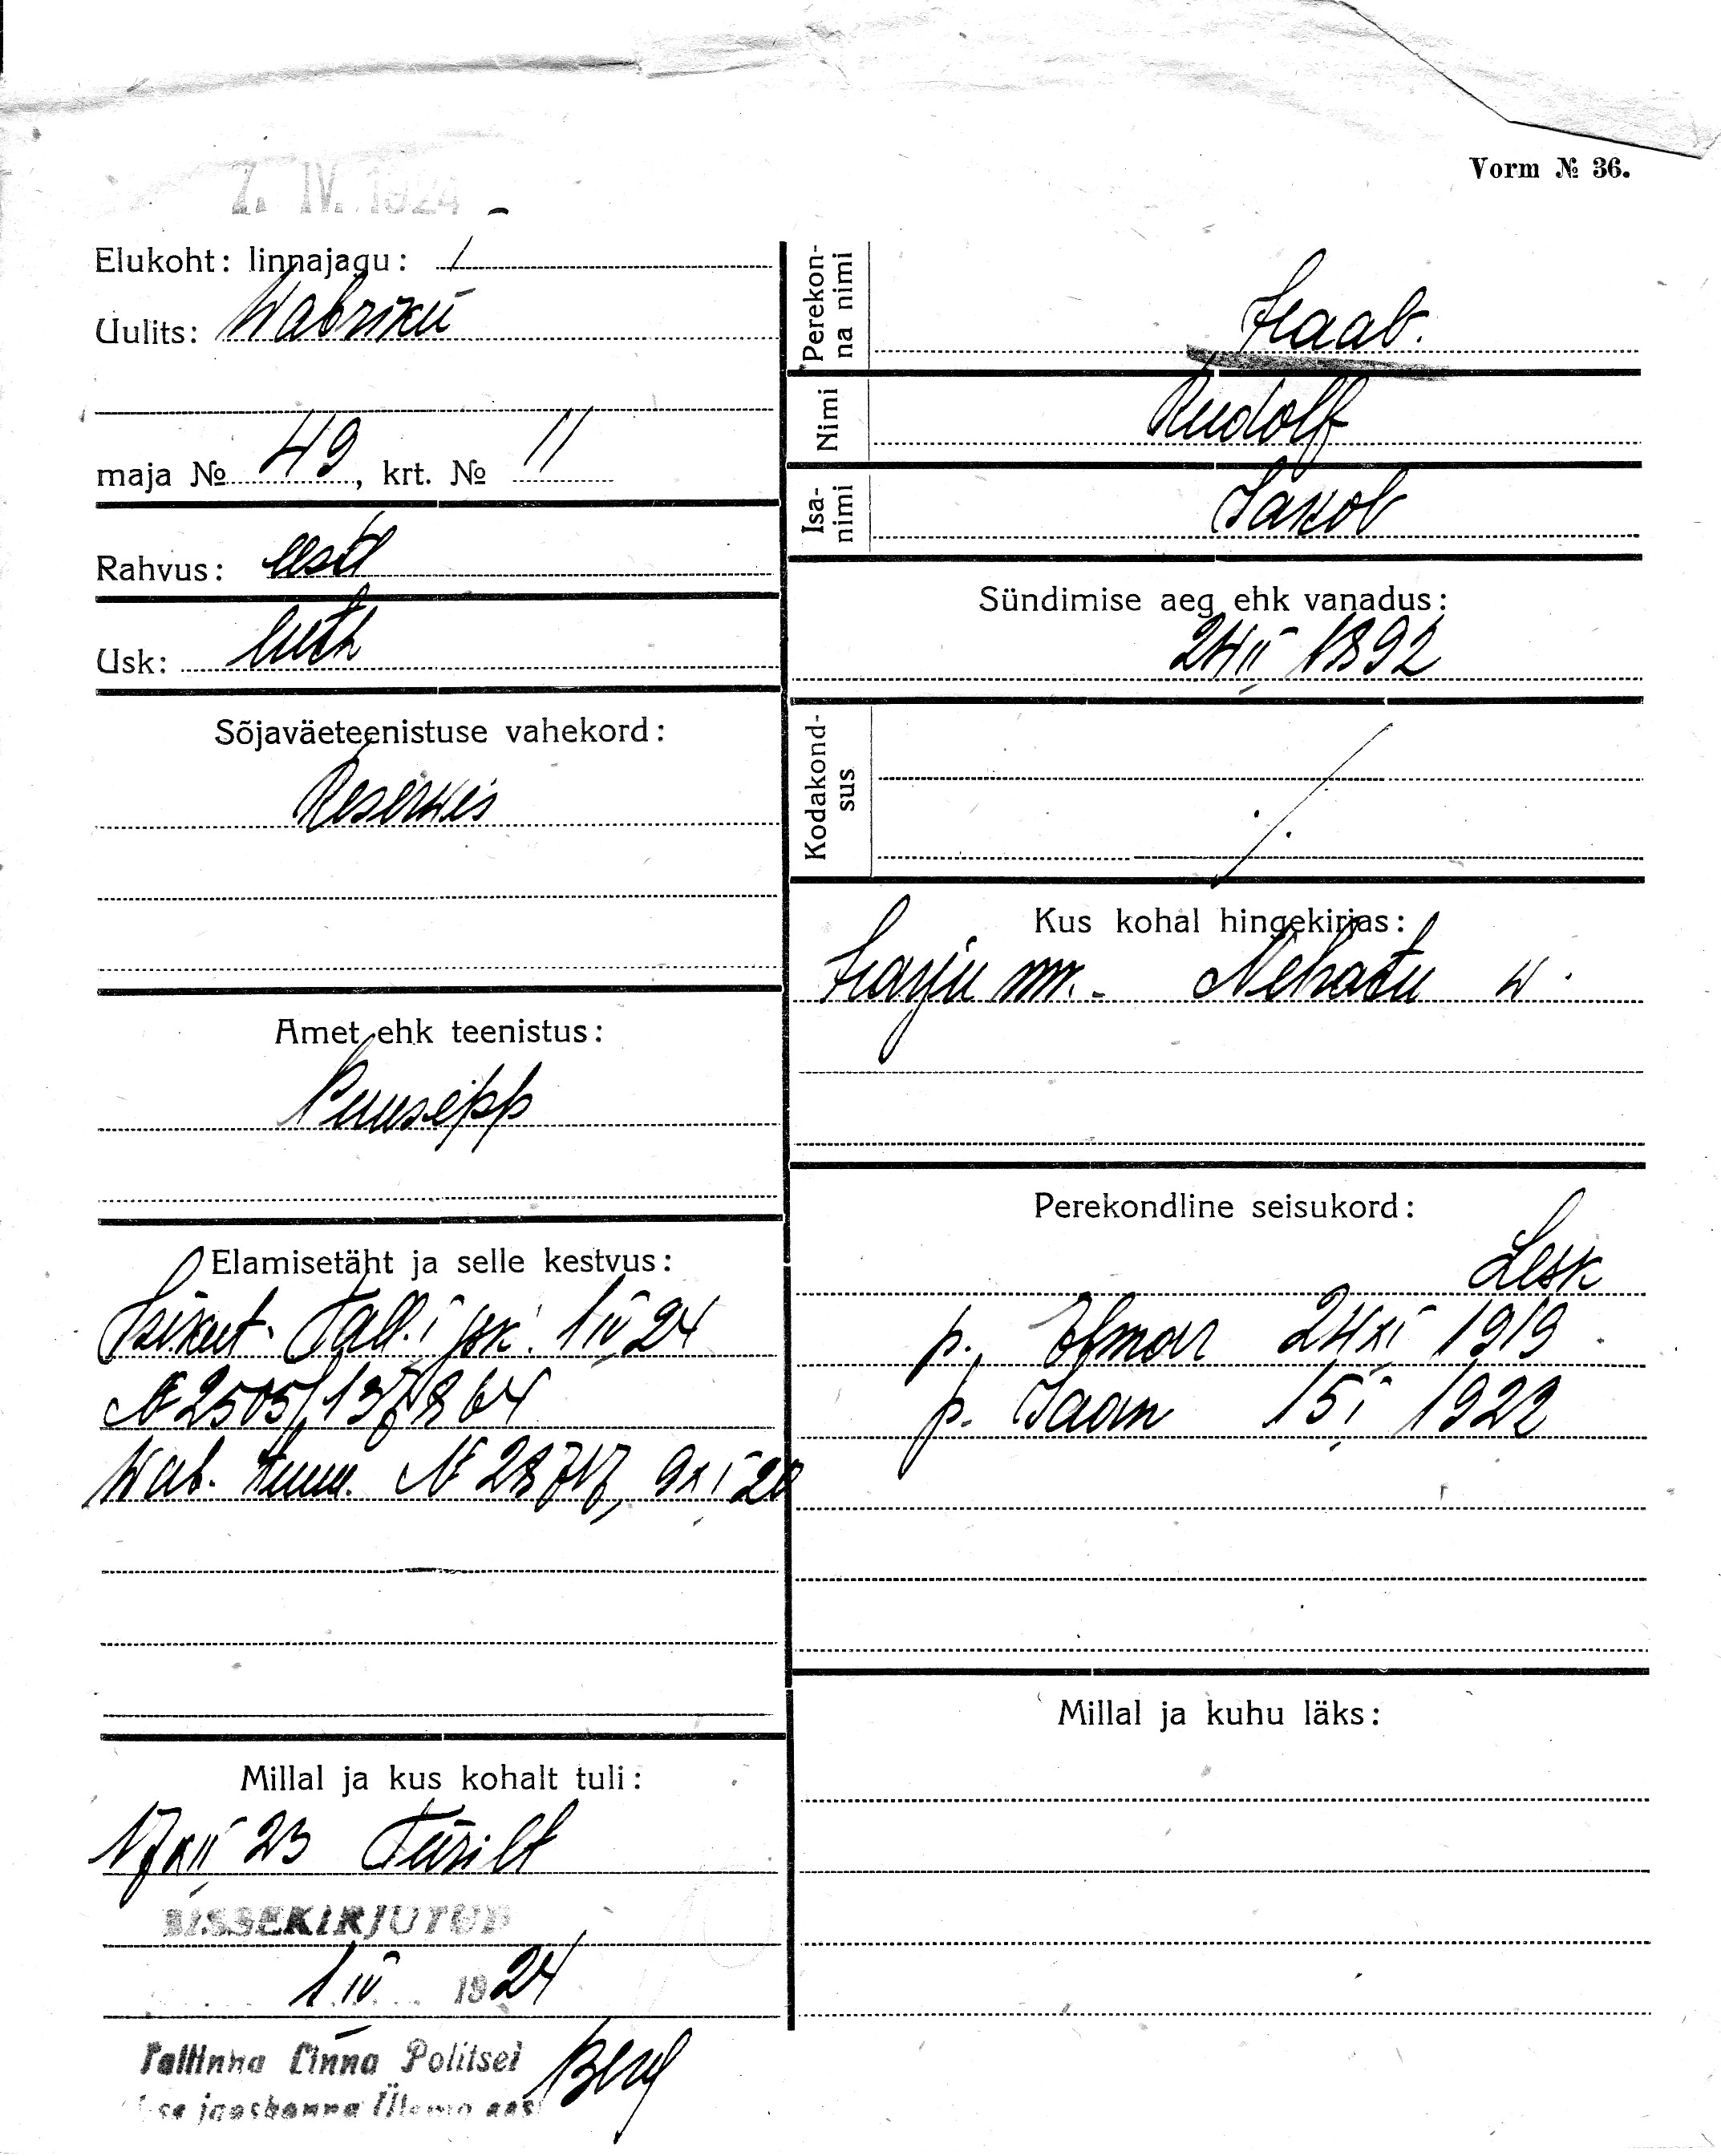 Vorm № 36.
7. IV. 1924
Elukoht: linnajagu: I
Uulits: Wabriku
maja № 49, krt. № 11
Rahvus: eesti
Usk: luth
Sõjaväeteenistuse vahekord:
Reserwis
Amet ehk teenistus:
Puusepp
Elamisetäht ja selle kestvus:
Isikut. Tall. I jsk. 1 IV 24
№ 2505/137864
Wab. tunn. № 28717, 9 XI 20
Millal ja kus kohalt tuli:
17 XII 23 Türilt
SISSEKIRJUTUD
1 IV 1924
Tallinna Linna Politsei
jaoskonna Ülema
Perekonna nimi
Haab.
Nimi
Rudolf
Isanimi
Jakob
Sündimise aeg ehk vanadus:
24 II 1892
Kodakondsus
Kus kohal hingekirjas:
Harju mk. Nehatu w.
Perekondline seisukord:
Lesk
p. Elmar 24 XI 1919
p. Jaan 15 I 1922
Millal ja kuhu läks: